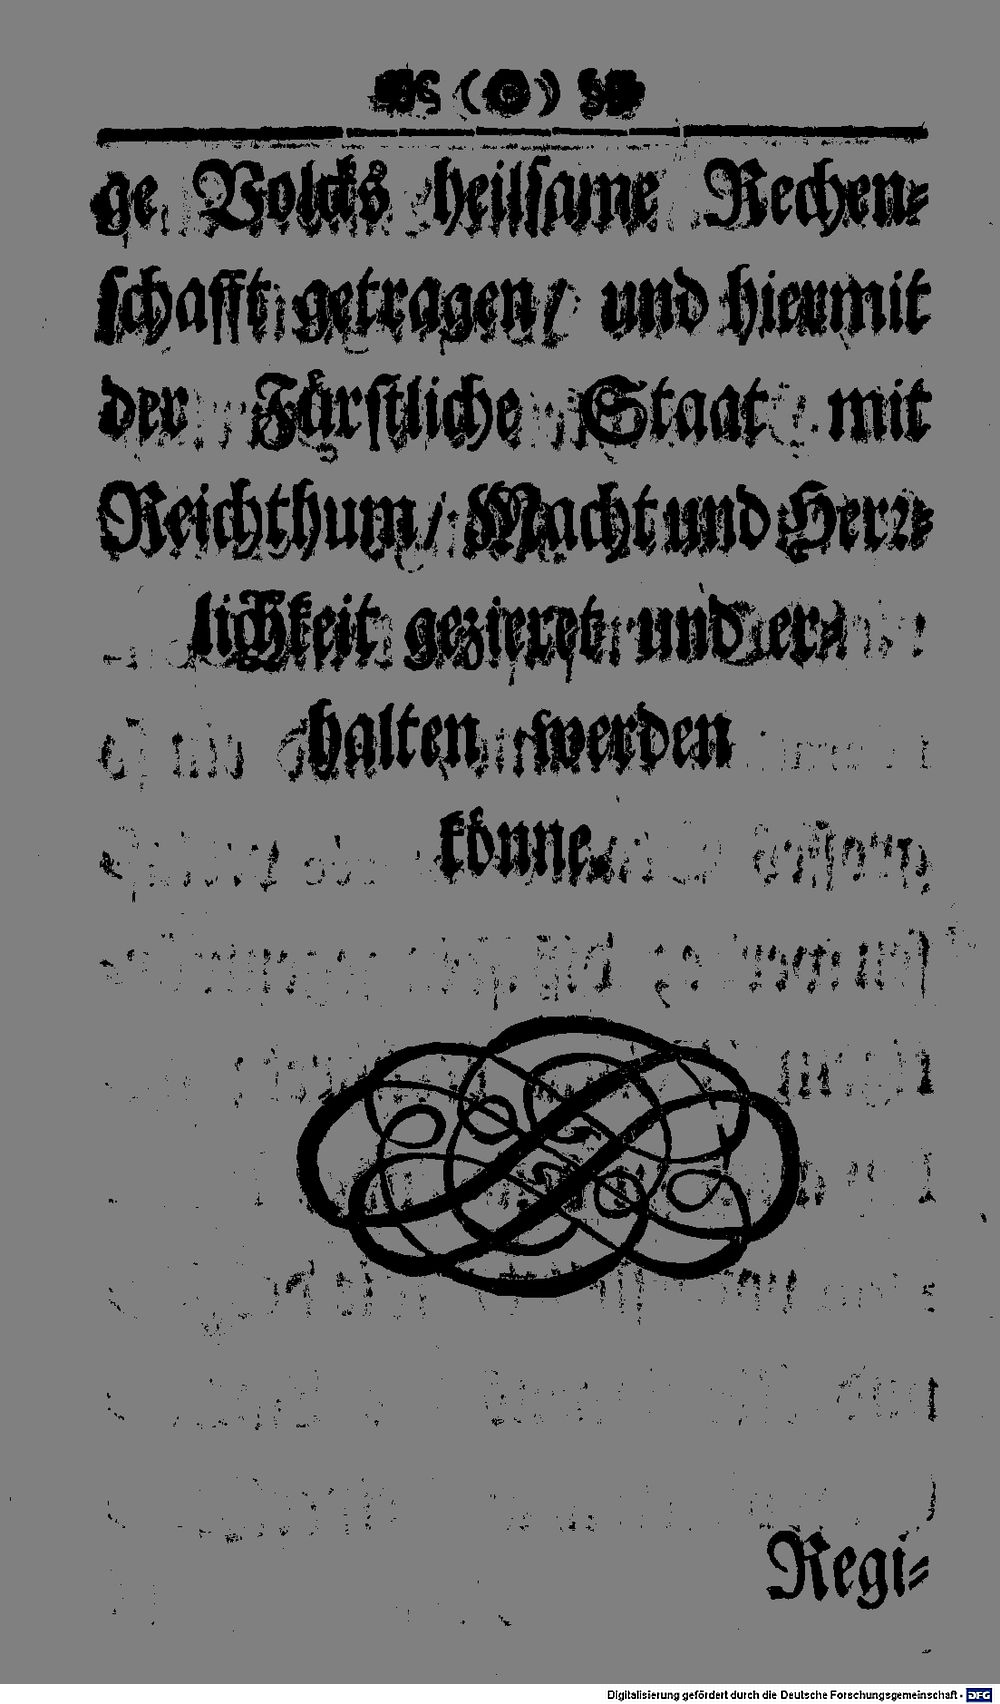 ge Volcks heilsame Rechen⸗
schafft getragen/ und hiermit
der Fürstliche Staat mit
Reichthum/ Macht und Herr⸗
lichkeit gezieret und er⸗
halten werden
könne.
Regi⸗
Digitalisierung gefördert durch die Deutsche Forschungsgemeinschaft - DFG